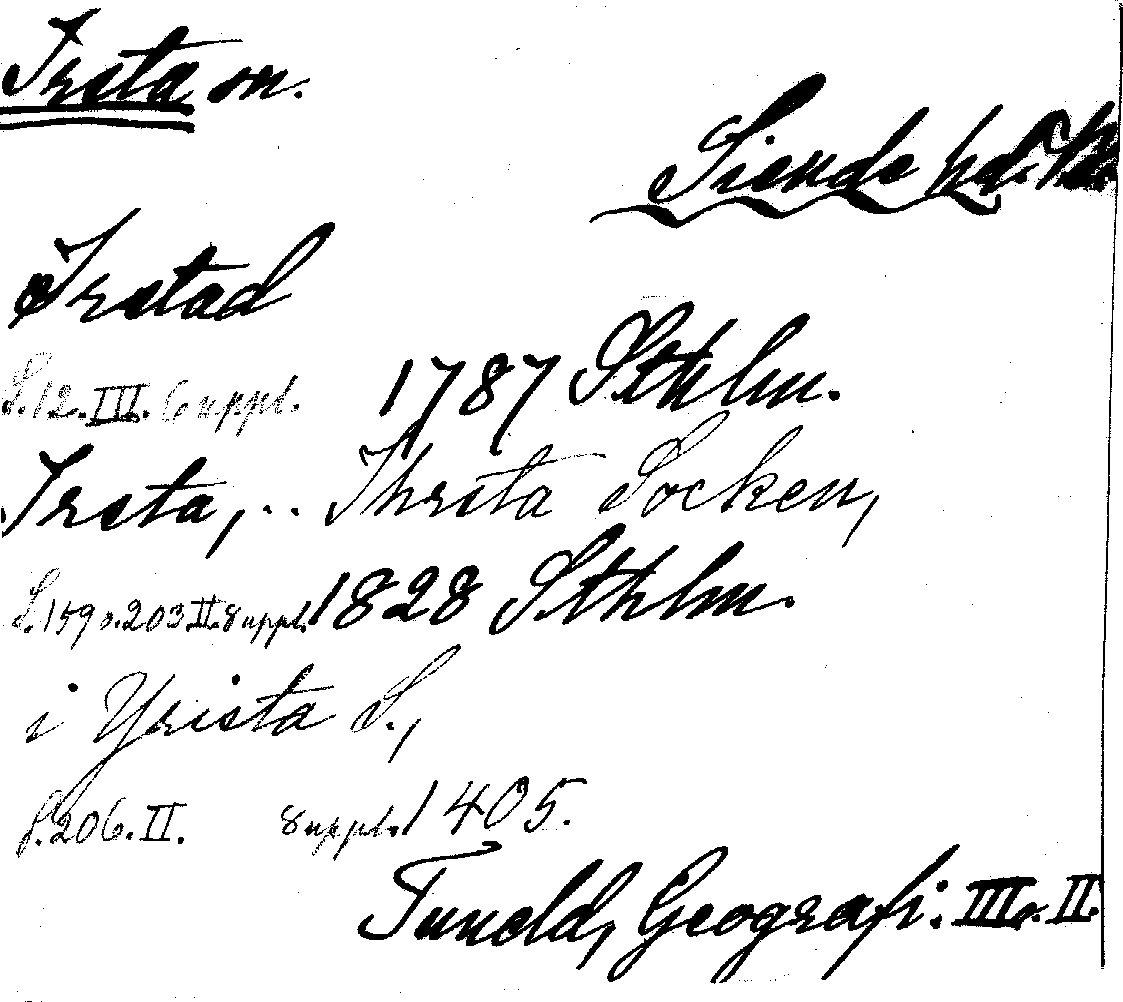 Irsta sn.
Siende hd.
Irstad
S.12.III. 6 uppl. 1787 Sthlm.
Irsta, .. Ihrsta Socken,
S.159 o.203 II. 8 uppl. 1828 Sthlm.
i Yrista S.,
s.206.II. 8 uppl. 1405.
Tuneld, Geografi: III o. II.